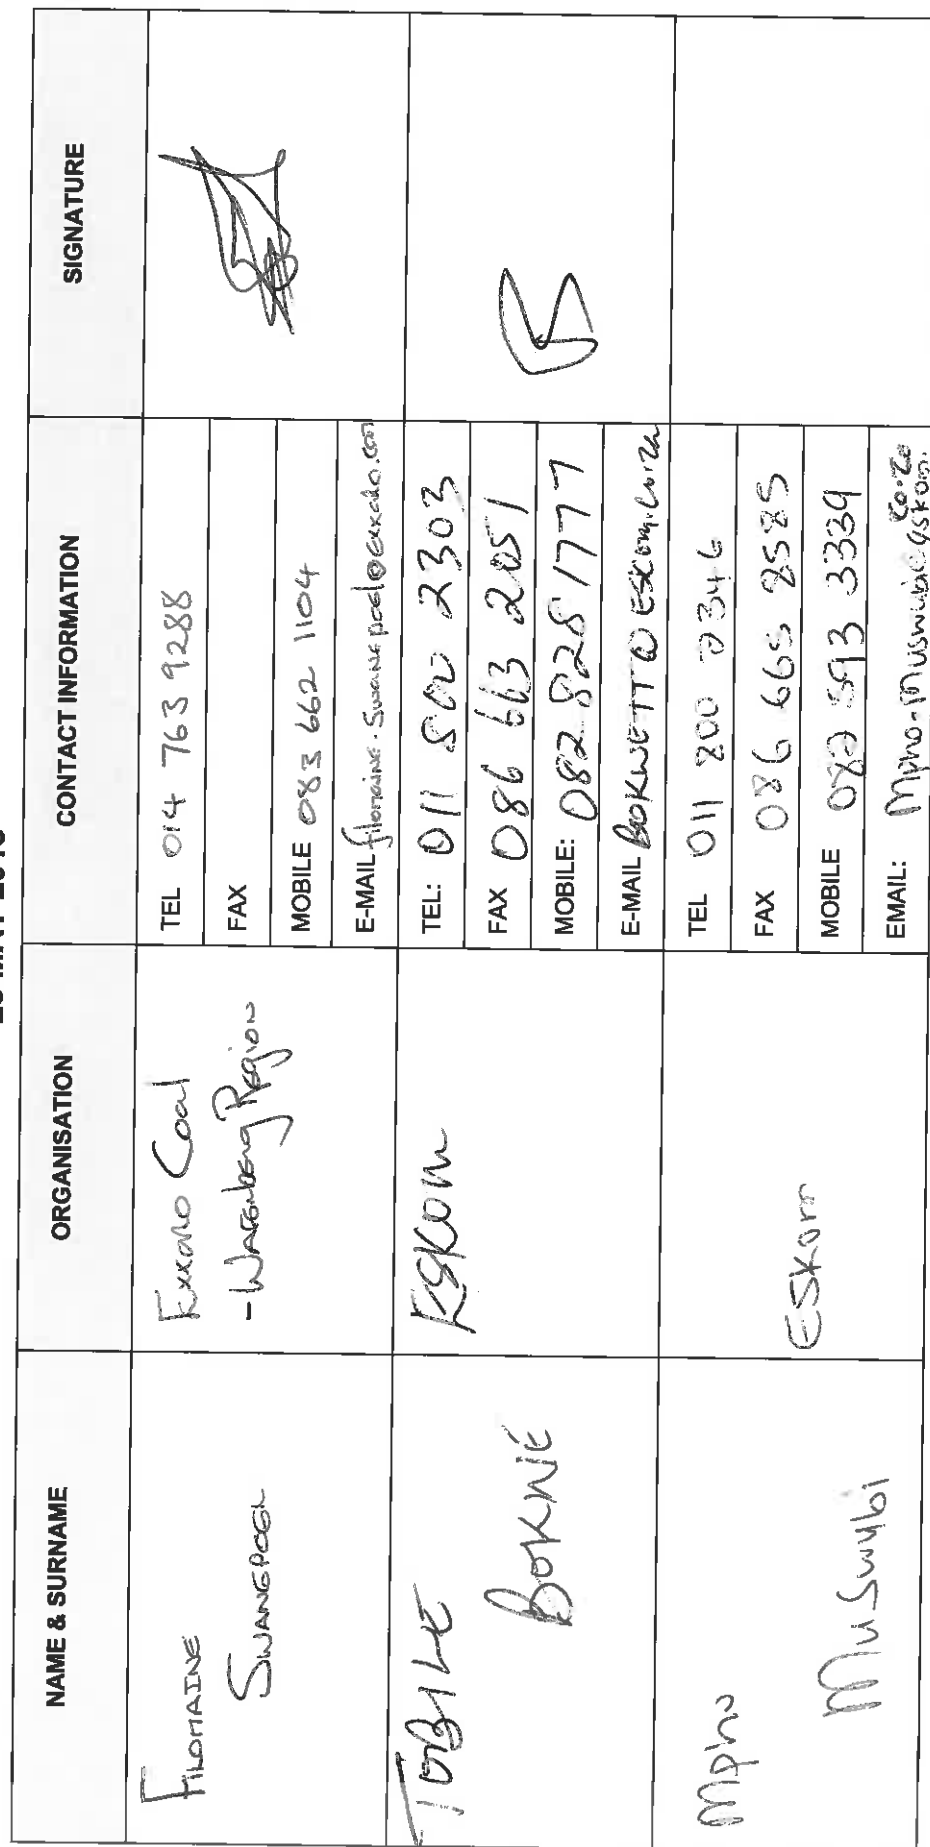 NAME & SURNAME
ORGANISATION
CONTACT INFORMATION
SIGNATURE
FILOMAINE
SWANEPOEL
Exxaro Coal
-Waterberg Region
TEL 014 763 9288
FAX
MOBILE 083 662 1104
E-MAIL filomaine.swanepoel@exxaro.com
TOBILE
BOKWE
ESKOM
TEL: 011 800 2303
FAX 086 663 2051
MOBILE: 082 828 1777
E-MAIL BOKWETT@ESKOM.CO.ZA
Mpho
Muswubi
ESKom
TEL 011 800 2346
FAX 086 665 8585
MOBILE 082 593 3339
EMAIL: Mpho.Muswubi@eskom.
co.za